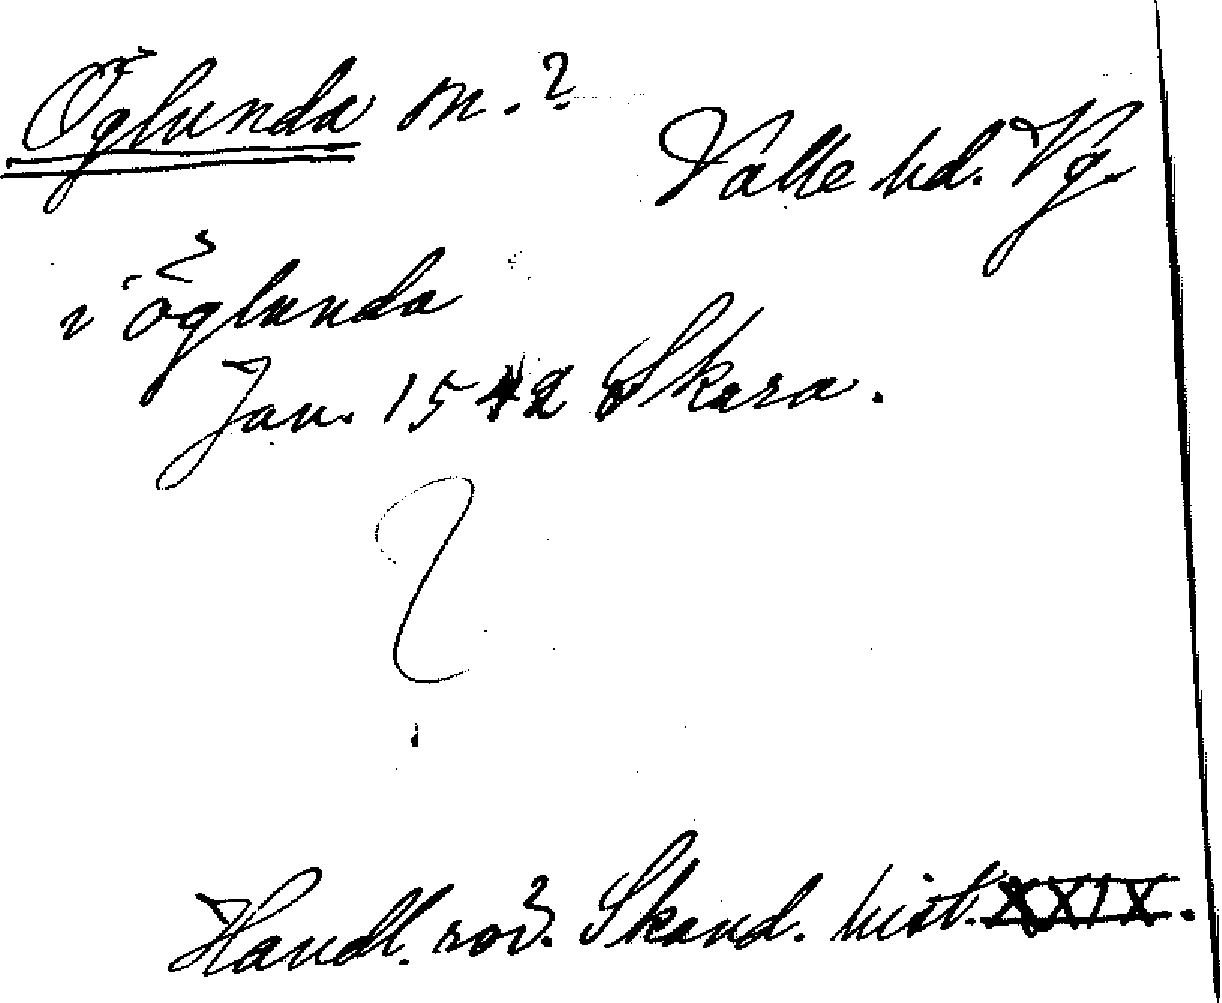 Öglunda m.?
Valle hd. Vg.
i öglunda
Jan. 1542 Skara.
?
Handl. rör. Skand. hist. XXIX.